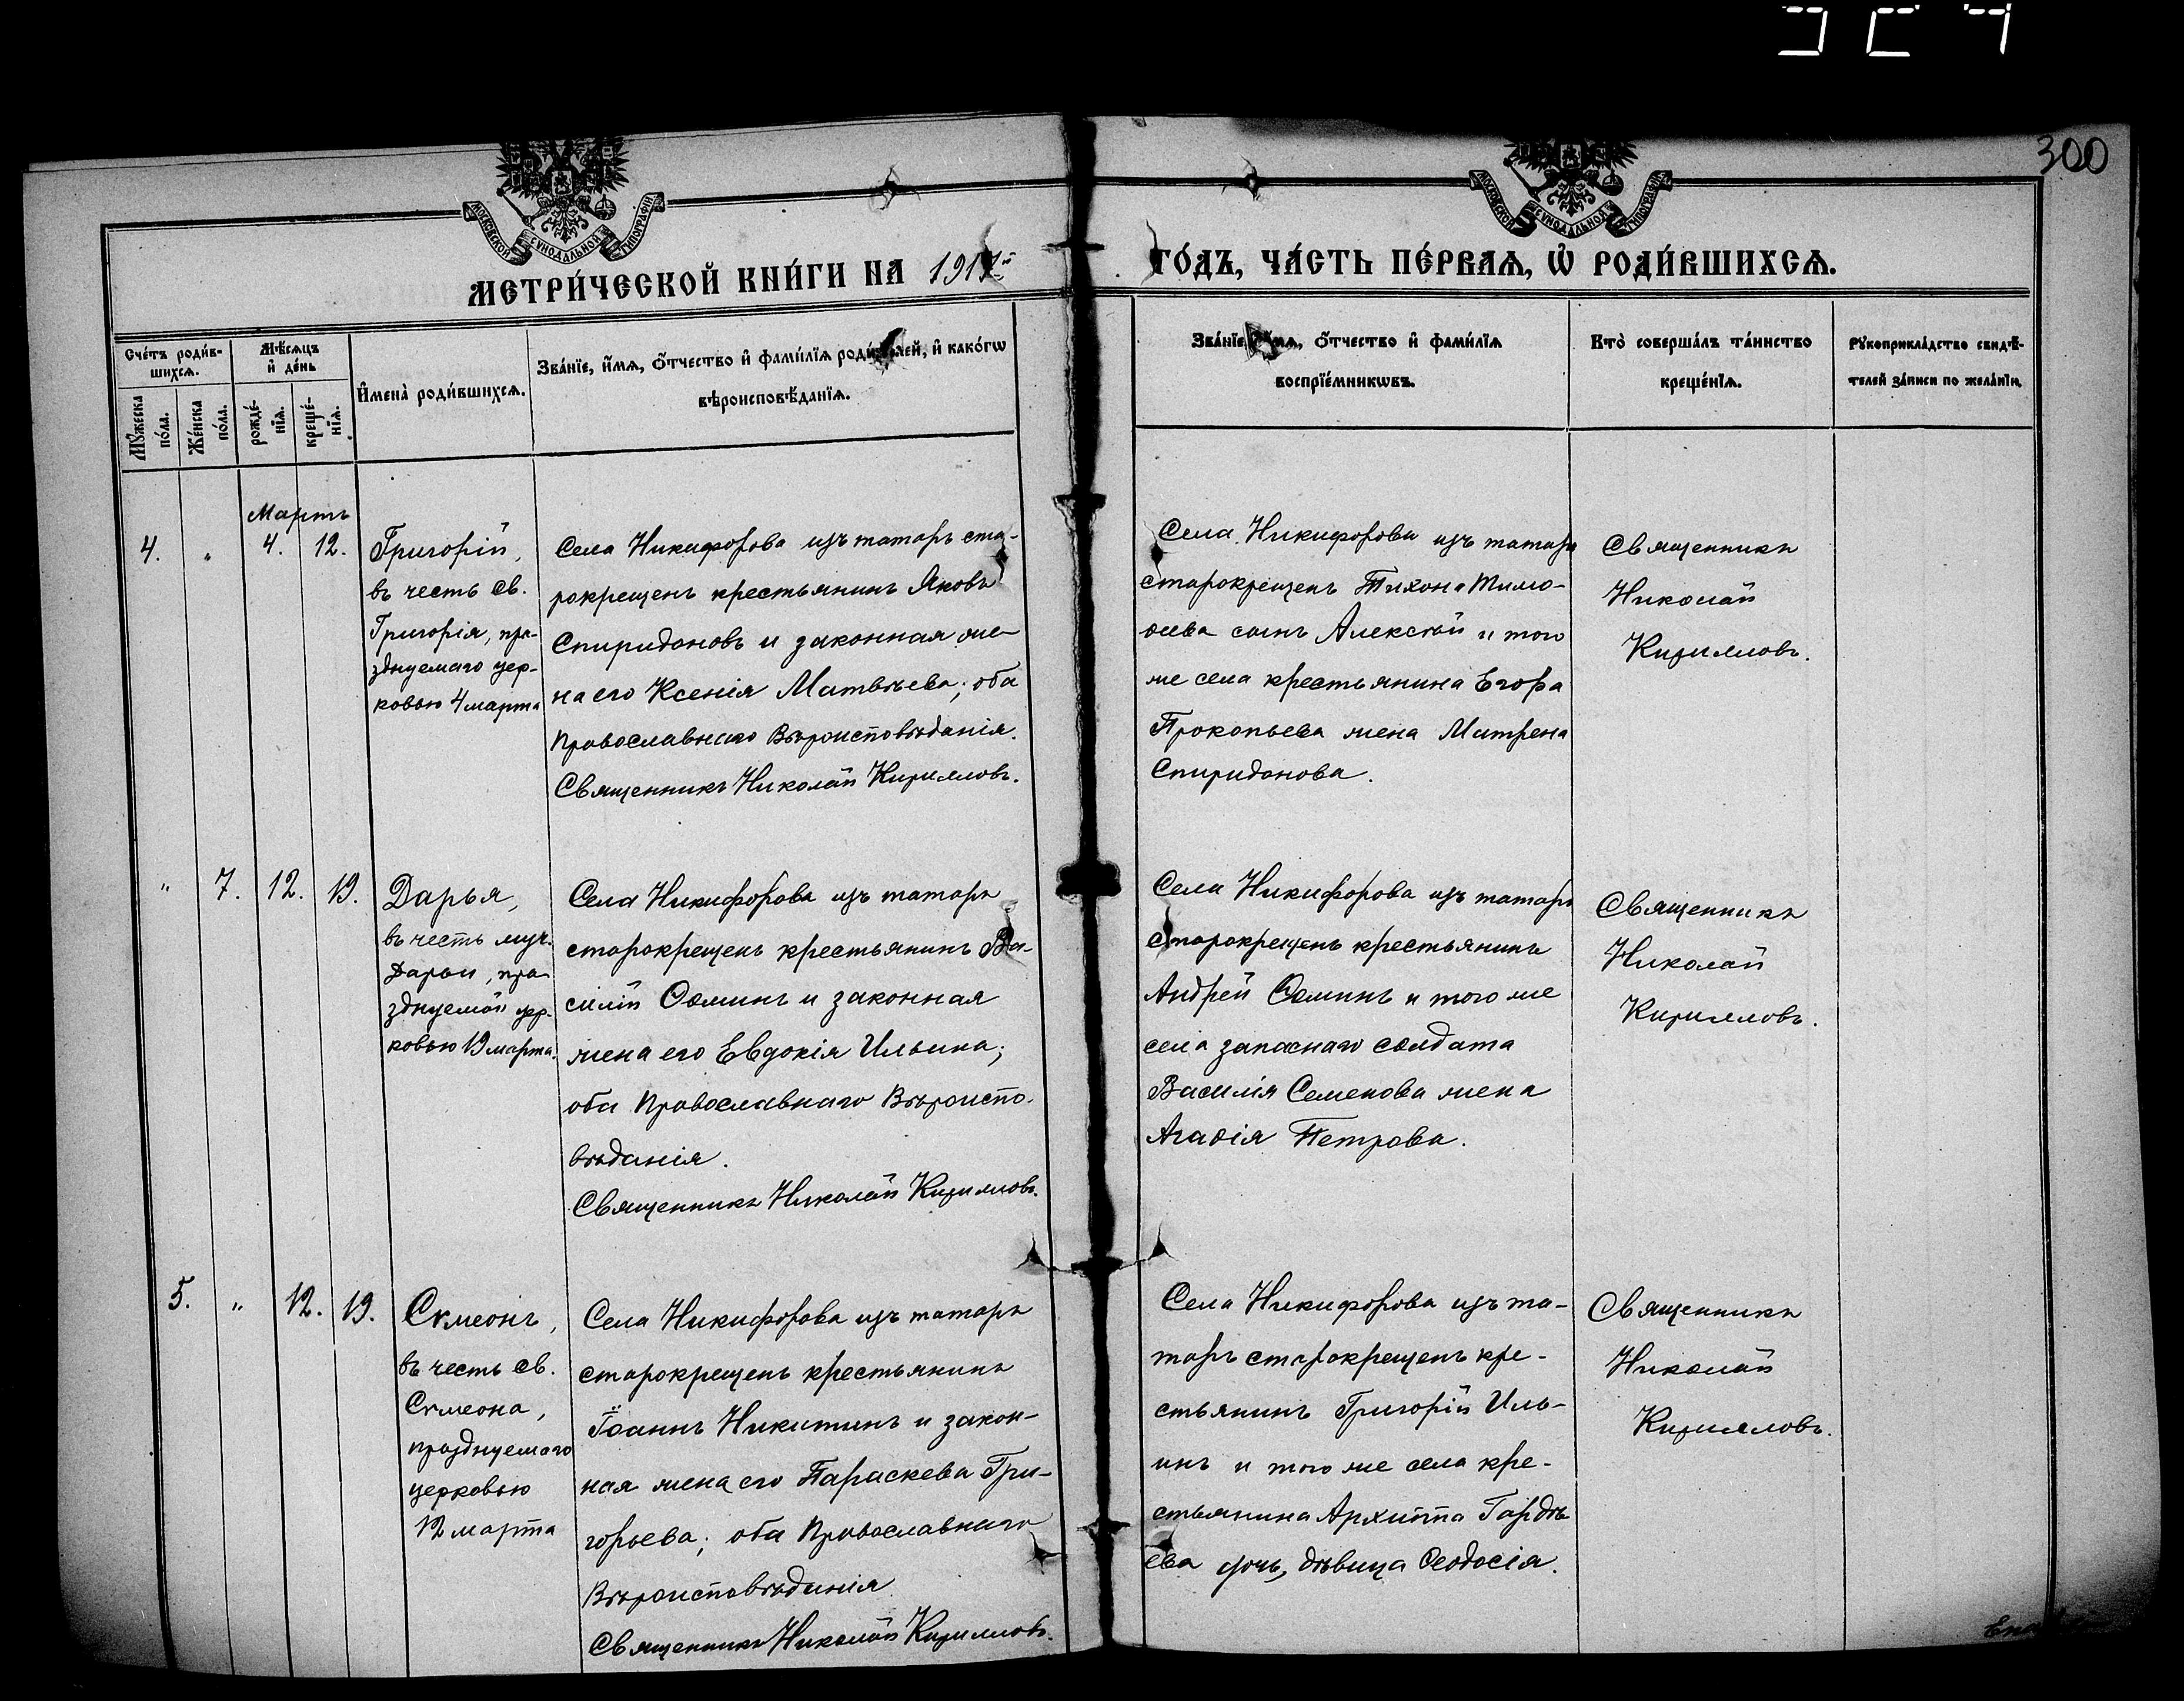 300
МОСКОВСКОЙ СѴНОДАЛЬНОЙ ТИПОГРАФІИ
МОСКОВСКОЙ СѴНОДАЛЬНОЙ ТИПОГРАФІИ
МЕТРИ́ЧЕСКОЙ КНИ́ГИ НА 1917й
ГО́ДЪ, ЧА́СТЬ ПЕ́РВАѦ, Ѡ҆ РОДИ́ВШИХСѦ.
Сче́тъ роди́в-
шихсѧ.
Мꙋ́жеска по́ла.
Же́нска по́ла.
Мѣ́сѧцъ
и҆ де́нь
рожде́-
нїѧ.
креще́-
нїѧ.
И҆мена̀ роди́вшихсѧ.
Зва́нїе, и҆́мѧ, ѻ҆́тчество и҆ фами́лїѧ роди́телей, и҆ како́гѡ
вѣроисповѣ́данїѧ.
Зва́нїе, и҆́мѧ, ѻ҆́тчество и҆ фами́лїѧ
воспрїе́мникѡвъ.
Кто̀ соверша́лъ та́инство
креще́нїѧ.
Рꙋкоприкла́дство свидѣ́-
телей за́писи по жела́нїю.
Мартъ
4. " 4. 12.
Григорій,
въ честь св.
Григорія, пра-
зднуемаго цер-
ковью 4 марта
Села Никифорова изъ татаръ ста-
рокрещенъ крестьянинъ Яковъ
Спиридоновъ и законная же-
на его Ксенія Матвѣева; оба
Православнаго Вѣроисповѣданія.
Священникъ Николай Кирилловъ.
Села Никифорова изъ татаръ
старокрещенъ Тихона Тимо-
ѳеева сынъ Алексѣй и того
же села крестьянина Егора
Прокопьева жена Матрена
Спиридонова.
Священникъ
Николай
Кирилловъ.
" 7. 12. 19.
Дарья,
въ честь муч.
Дарьи, пра-
зднуемой цер-
ковью 19 марта.
Села Никифорова изъ татаръ
старокрещенъ крестьянинъ Ва-
силій Ѳоминъ и законная
жена его Евдокія Ильина;
оба Православнаго Вѣроиспо-
вѣданія.
Священникъ Николай Кирилловъ.
Села Никифорова изъ татаръ
старокрещенъ крестьянинъ
Андрей Ѳоминъ и того же
села запаснаго солдата
Василія Семенова жена
Агаѳія Петрова.
Священникъ
Николай
Кирилловъ.
5. " 12. 19.
Сѵмеонъ,
въ честь св.
Сѵмеона,
празднуемаго
церковью
12 марта
Села Никифорова изъ татаръ
старокрещенъ крестьянинъ
Іоаннъ Никитинъ и закон-
ная жена его Параскева Гри-
горьева; оба Православнаго
Вѣроисповѣданія
Священникъ Николай Кирилловъ.
Села Никифорова изъ та-
таръ старокрещенъ кре-
стьянинъ Григорій Иль-
инъ и того же села кре-
стьянина Архиппа Гордѣ
ева дочь, дѣвица Ѳеодосія.
Священникъ
Николай
Кирилловъ.